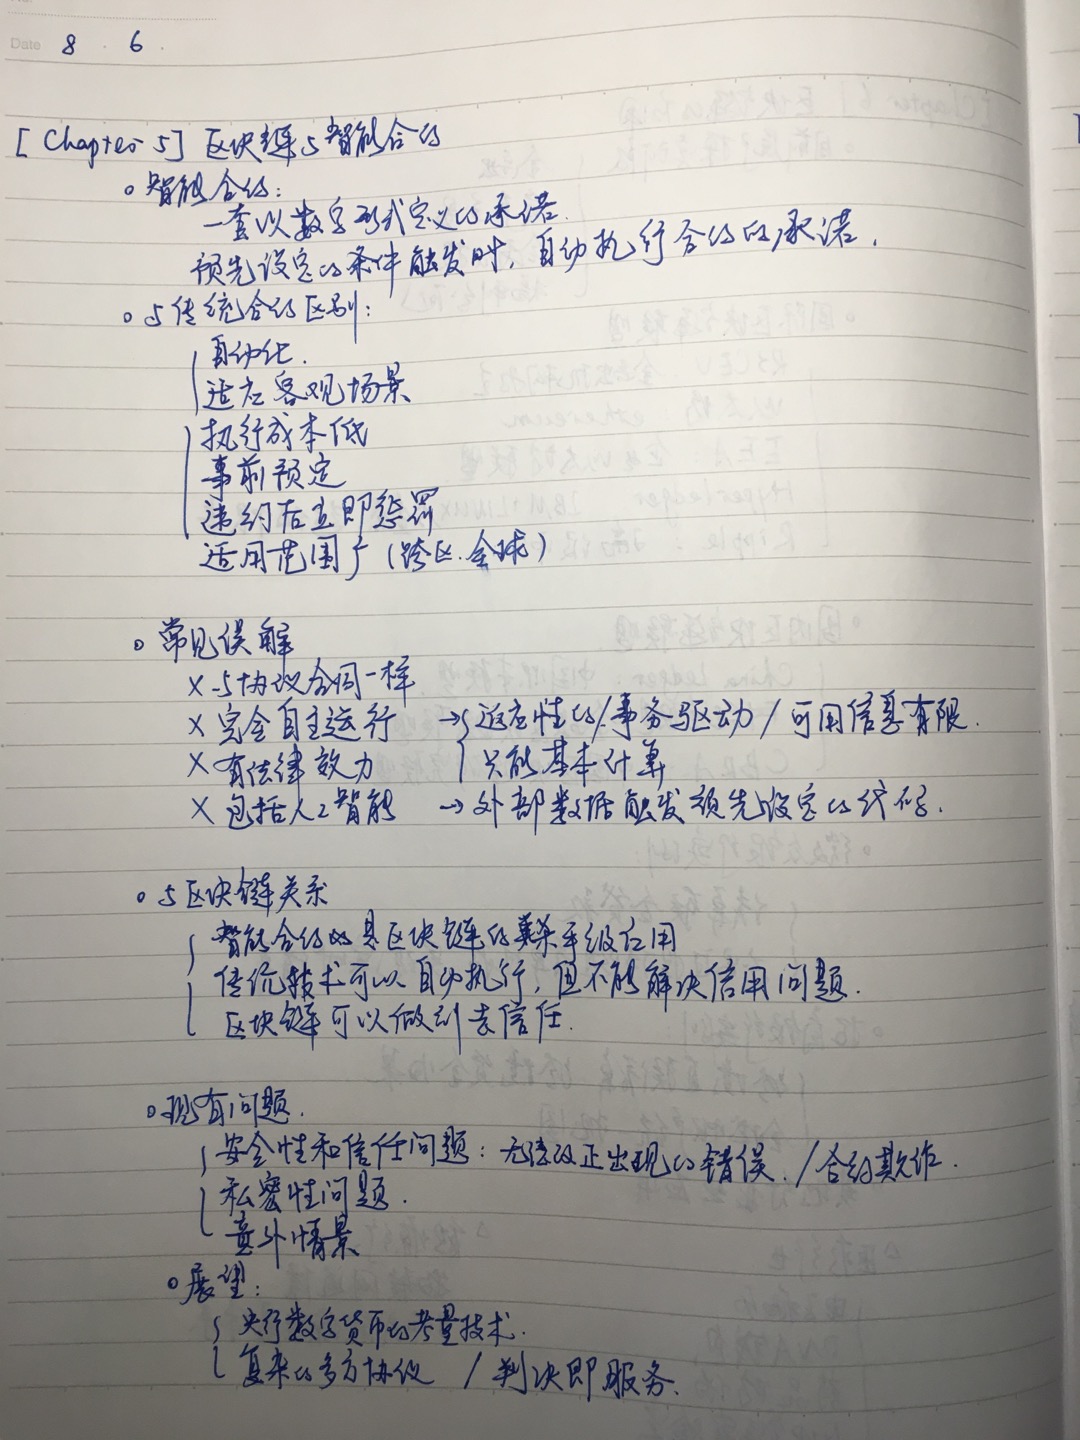 Date 8 . 6 .
[Chapter 5] 区块链与智能合约
。智能合约:
一套以数字形式定义的承诺.
预先设定的条件触发时,自动执行合约的承诺.
。与传统合约区别:
自动化.
适应客观场景
执行成本低
事前预定
违约后立即惩罚
适用范围广(跨区.全球)
。常见误解
× 与协议合同一样
× 完全自主运行 →适应性的/事务驱动/可用信息有限.
× 有法律效力 只能基本计算
× 包括人工智能 →外部数据触发预先设定的代码.
。与区块链关系
智能合约的是区块链的杀手级应用
传统技术可以自动执行,但不能解决信用问题.
区块链可以做到去信任.
。现有问题.
安全性和信任问题:无法改正出现的错误./合约欺诈.
私密性问题.
意外情景
。展望:
央行数字货币的考量技术.
复杂的多方协议 /判决即服务.